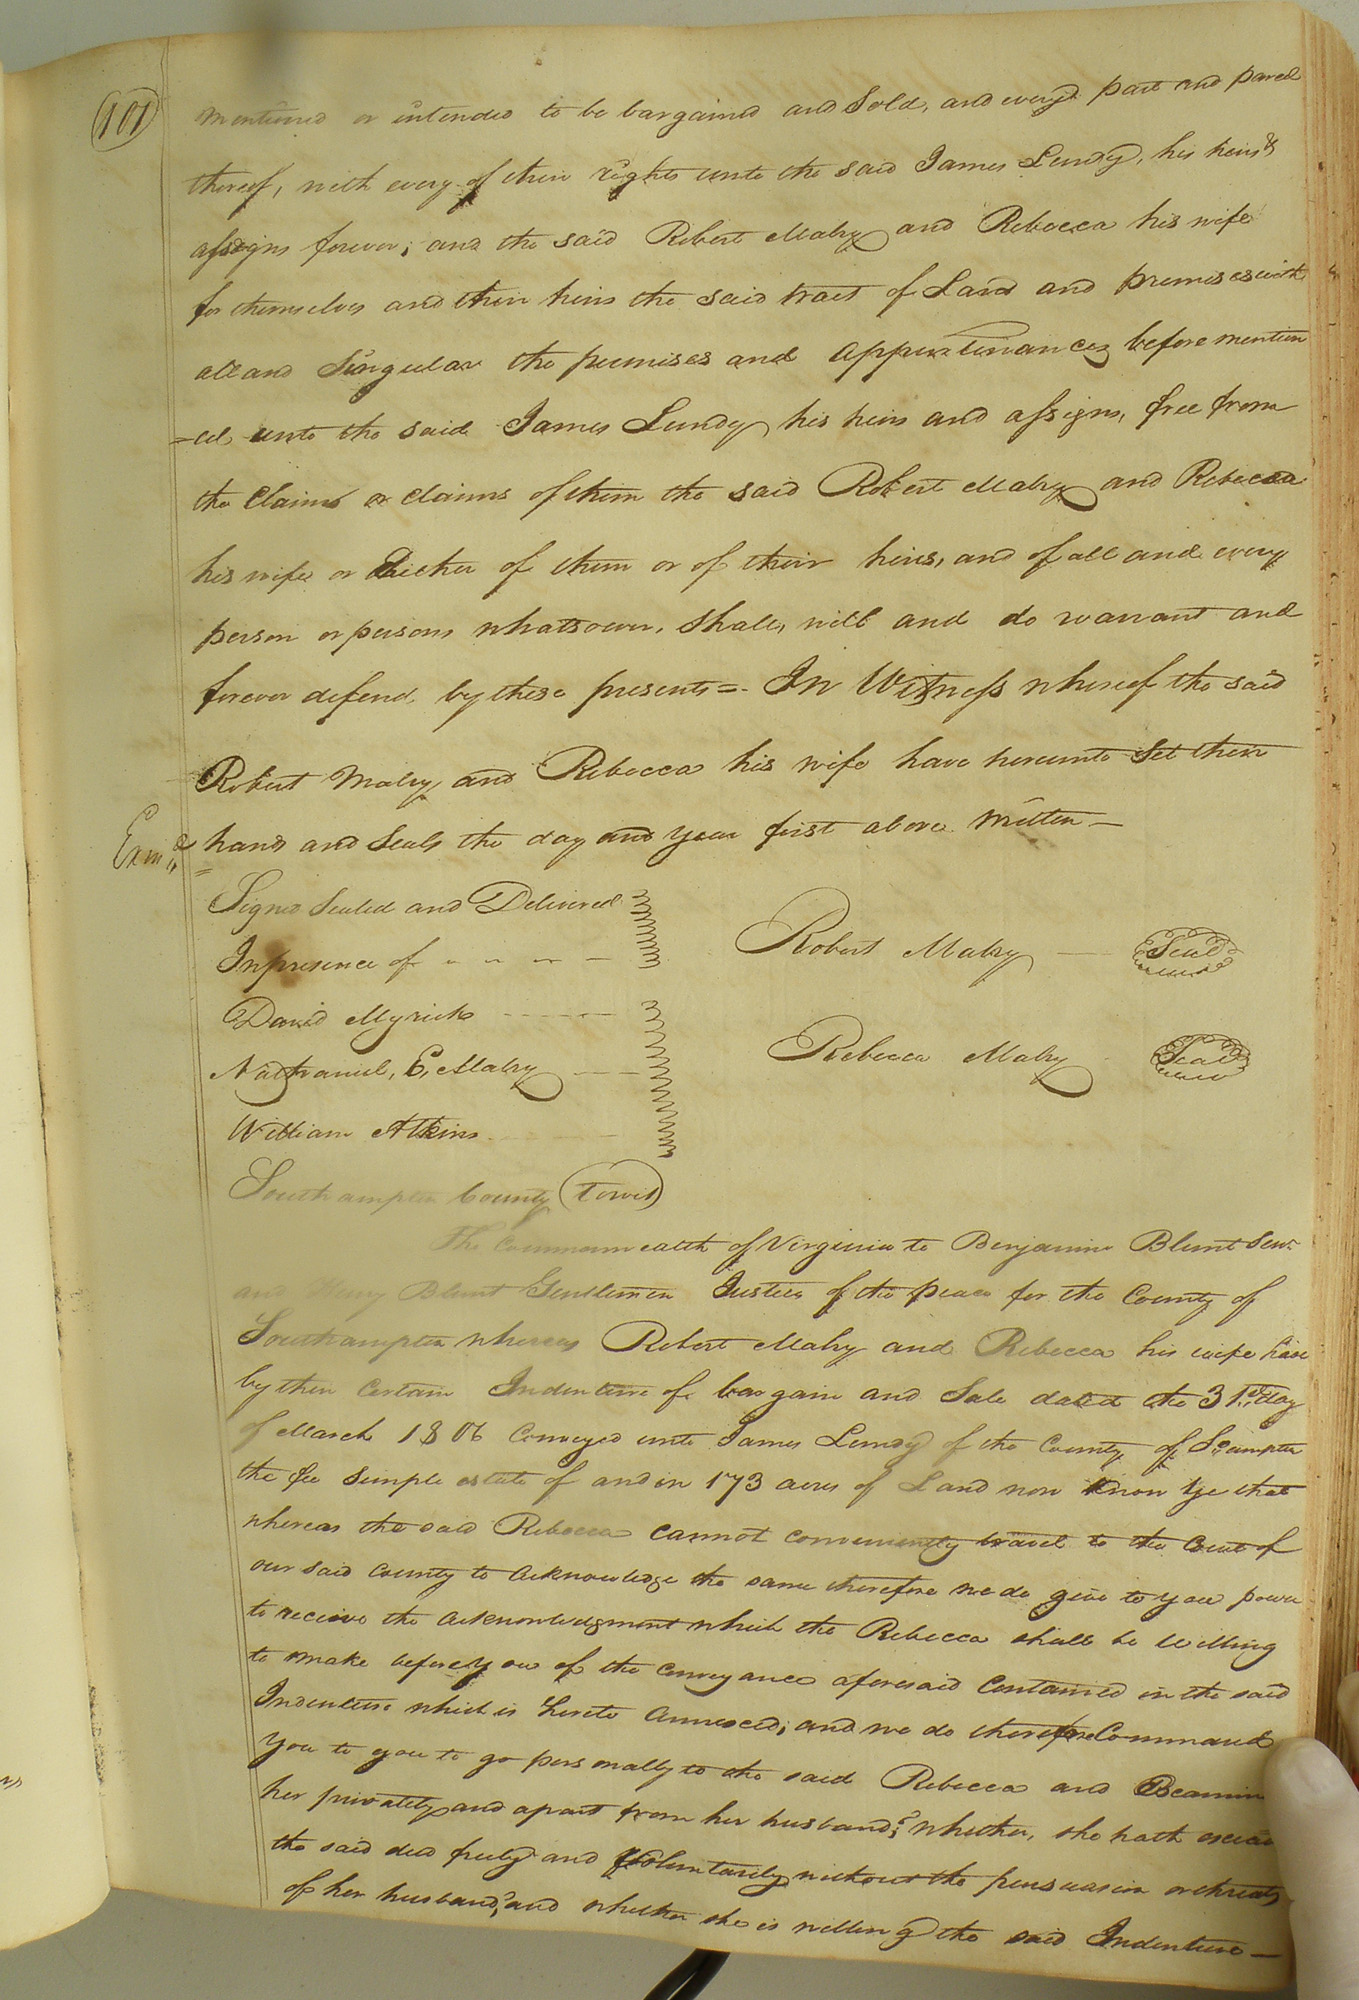 101
mentioned or intended to be bargained and Sold, and every part and parcel
thereof, with every of their rights unto the said James Lundy, his heirs &
assigns forever; and the said Robert Malry and Rebecca his wife
for themselves and their heirs the said tract of Land and premises with
all and Singular the premises and appurtinances before mention
-ed unto the said James Lundy his heirs and assigns, free from
the Claim or claims of them the said Robert Malry and Rebecca
his wife or Either of them or of their heirs, and of all and every
person or persons whatsoever, Shall, will and do warrant and
forever defend by these presents = In Witness whereof the said
Robert Malry and Rebecca his wife have hereunto Set their
Exmd hands and Seals the day and year first above Written —
Signed Sealed and Delivered
In presence of
Robert Malry Seal
David Myrick
Nathaniel, E, Malry
Rebecca Malry Seal
William Atkins
Southampton County (towit)
The Commonwealth of Virginia to Benjamin Blunt Senr.
and Henry Blunt Gentlemen Justice of the peace for the County of
Southampton whereas Robert Malry and Rebecca his wife have
by their Certain Indenture of bargain and Sale dated the 31st. day
of March 1806 Conveyed unto James Lundy of the County of So.ampton
the fee Simple estate of and in 173 acres of Land now Know Ye that
whereas the said Rebecca cannot conveniently travel to the Court of
our said county to Acknowledge the same therefore we do give to you power
to receive the acknowledgment which the Rebecca shall be Willing
to make before you of the conveyance aforesaid Contained in the said
Indenture which is hereto Annexed; and we do therefore Command
you to you to go personally to the said Rebecca and Examin
her privately and apart from her husband; whether, she hath
the said deed freely and Voluntarily without the persuasion or threats
of her husband, and whether she is willing the said Indenture —